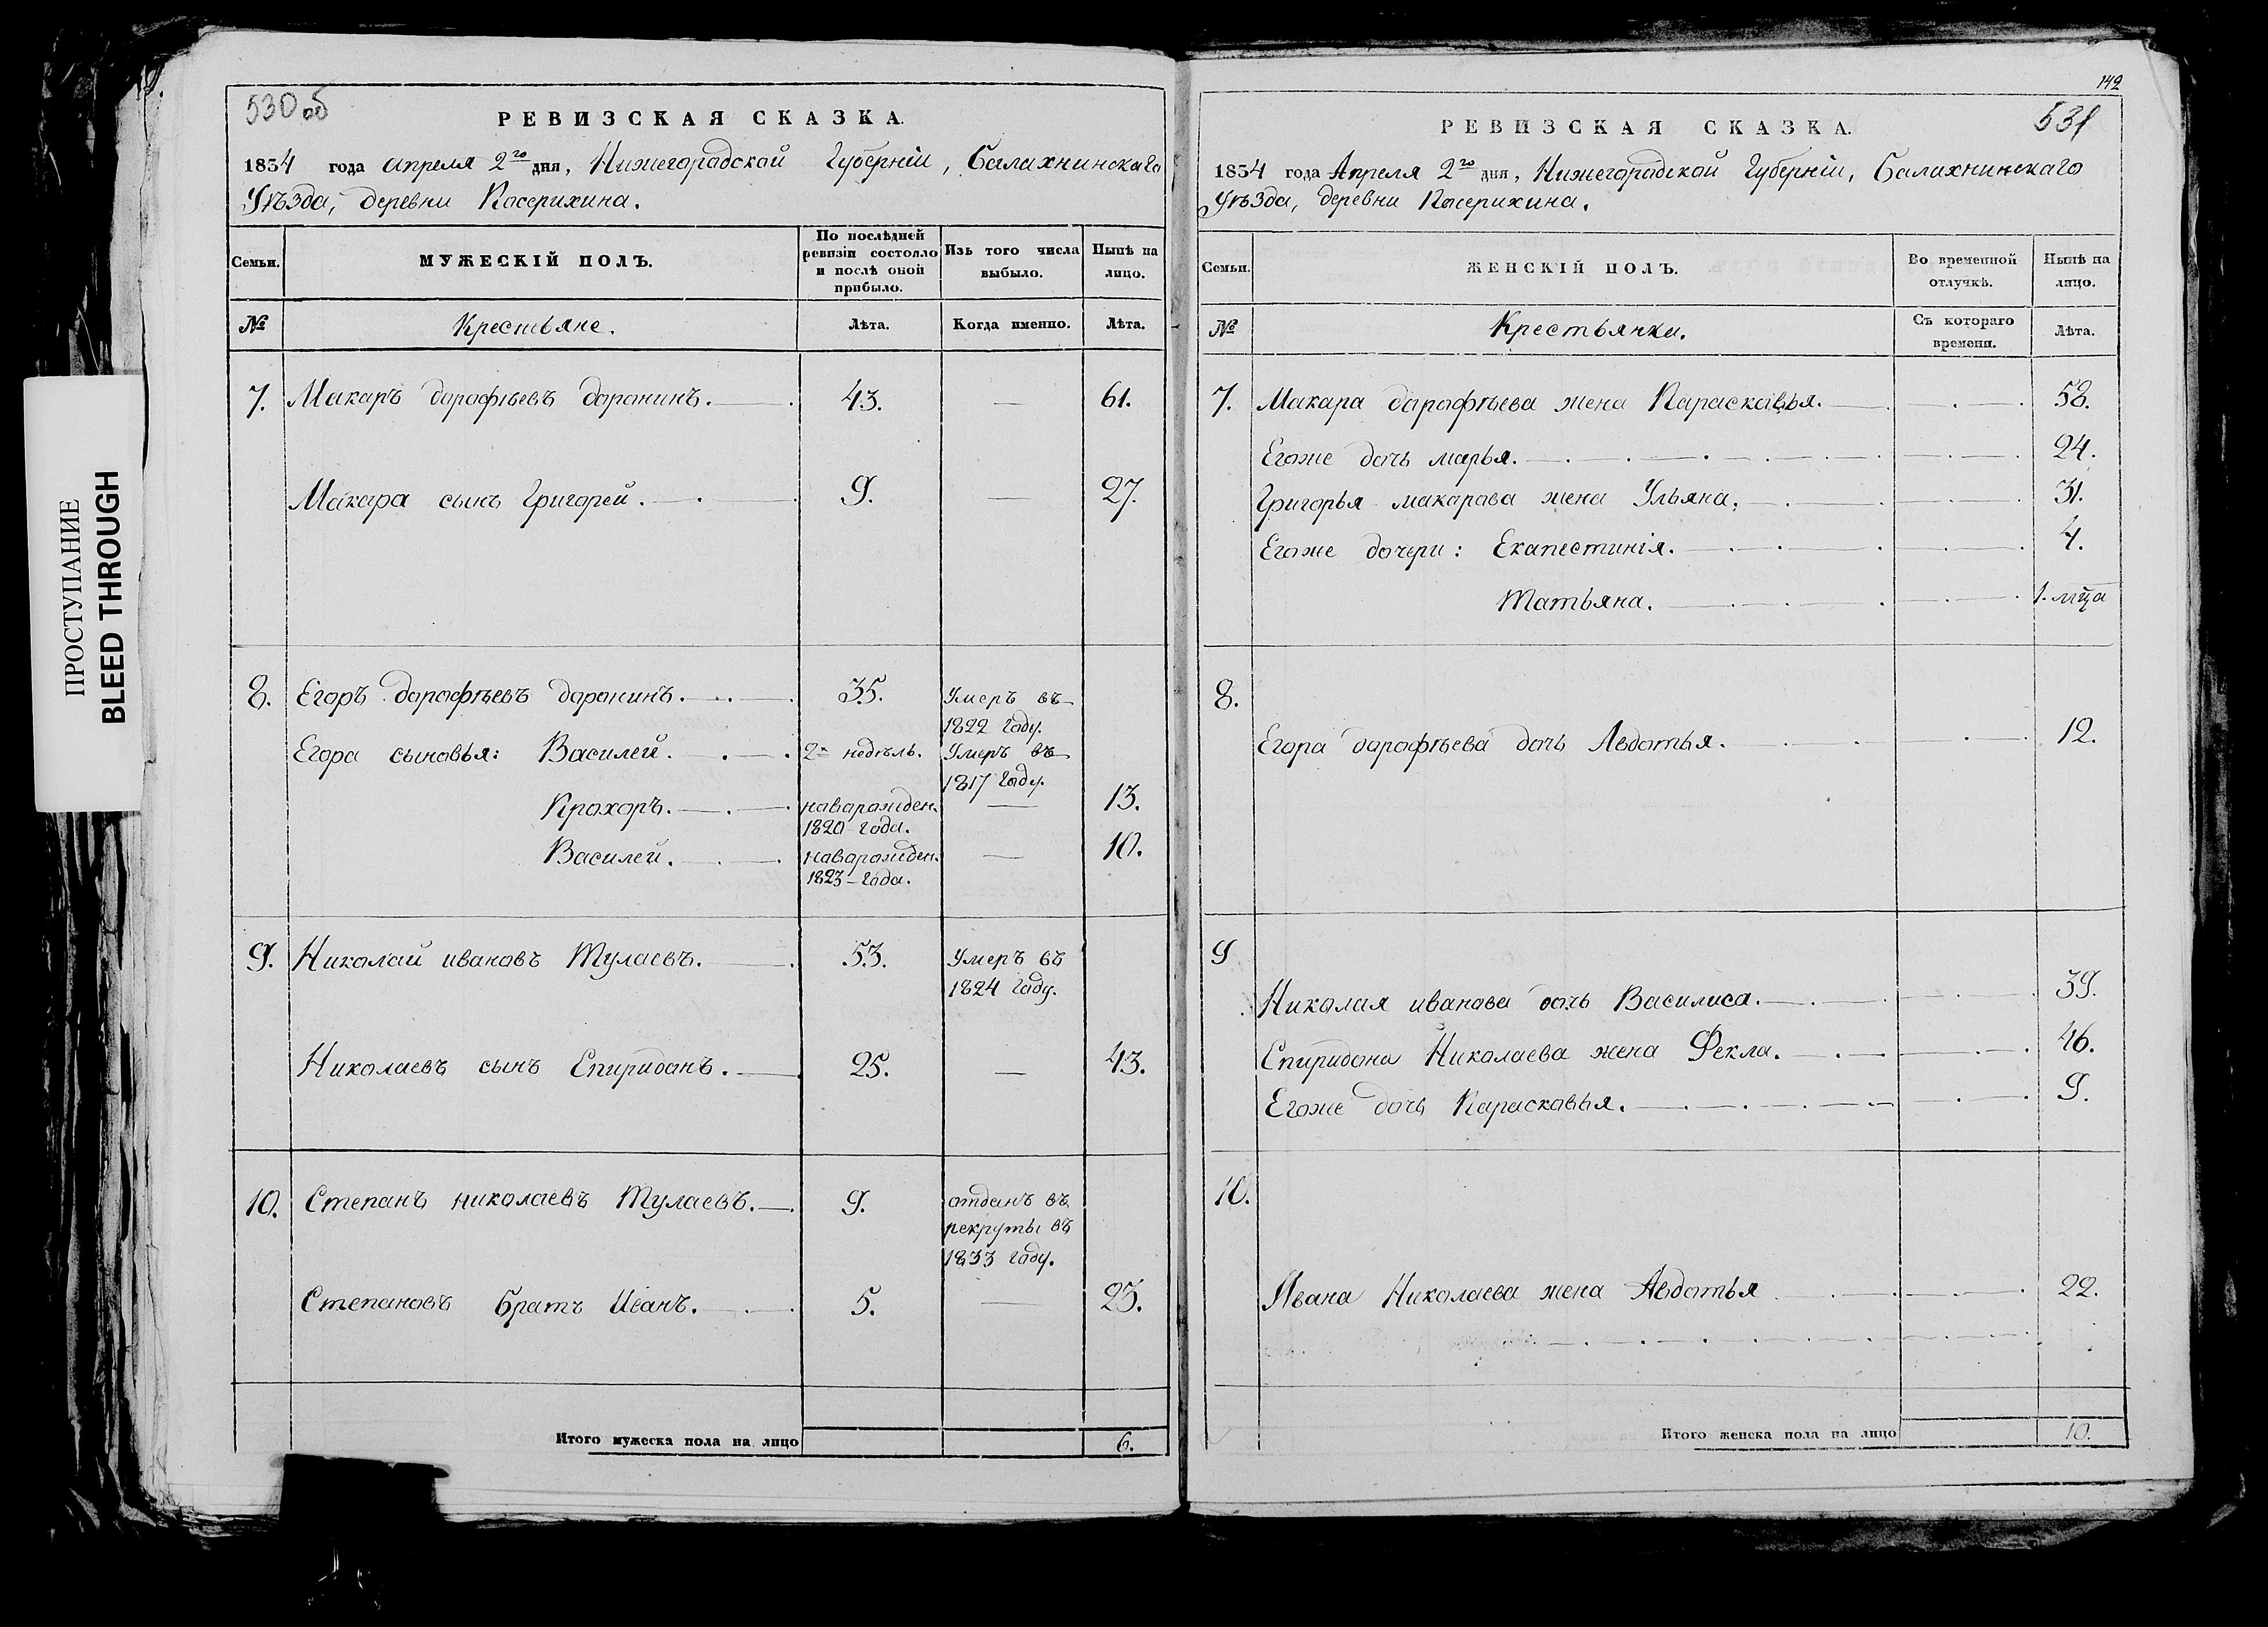 ПРОСТУПАНИЕ
BLEED THROUGH
530 об
РЕВИЗСКАЯ СКАЗКА.
1834 года апреля 2го дня, Нижегорадской Губерніи, Балахнинскаго
Уѣзда, деревни Косерихина.
Семьи.
МУЖЕСКІЙ ПОЛЪ.
По послѣдней ревизіи состояло и послѣ оной прибыло.
Изъ того числа выбыло.
Нынѣ на лицо.
№
Крестьяне.
Лѣта.
Когда именно.
Лѣта.
7. Макаръ дорофѣевъ доронинъ. 43. — 61.
Макара сынъ Григорей. 9. — 27.
8. Егоръ дорофѣевъ доронинъ. 35. Умеръ въ
1822 году.
Егора сыновья: Василей. 2х недѣль. Умеръ въ
1817 году.
Прохоръ. наворожден. — 13.
1820 года.
Василей. наворожден. — 10.
1823 года.
9. Николай ивановъ Тулаевъ. 53. Умеръ въ
1824 году.
Николаевъ сынъ Спиридонъ. 25. — 43.
10. Степанъ николаевъ Тулаевъ. 9. отданъ въ
рекруты въ
1833 году.
Степановъ братъ Иванъ. 5. — 23.
Итого мужеска пола на лицо 6.
142
531
РЕВИЗСКАЯ СКАЗКА.
1834 года Апреля 2го дня, Нижегорадской Губерніи, Балахнинскаго
Уѣзда, деревни Косерихина.
Семьи.
ЖЕНСКІЙ ПОЛЪ.
Во временной отлучкѣ.
Нынѣ на лицо.
№
Крестьянки.
Съ котораго времени.
Лѣта.
7. Макара дорофѣева жена Парасковья. 58.
Егоже дочь марья. 24.
Григорья макарова жена Ульяна. 31.
Егоже дочери: Екапестинія. 4.
Татьяна. 1. мца
8.
Егора дорофѣева дочь Авдотья. 12.
9
Николая иванова дочь Василиса. 39.
Спиридона Николаева жена Фекла. 46.
Егоже дочь Парасковья. 9.
10.
Ивана Николаева жена Авдотья 22.
Итого женска пола на лицо 10.